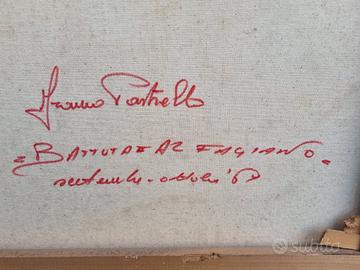 Franco Pastrello
= BATTUTA AL FAGIANO =
settembre - ottobre '
subito